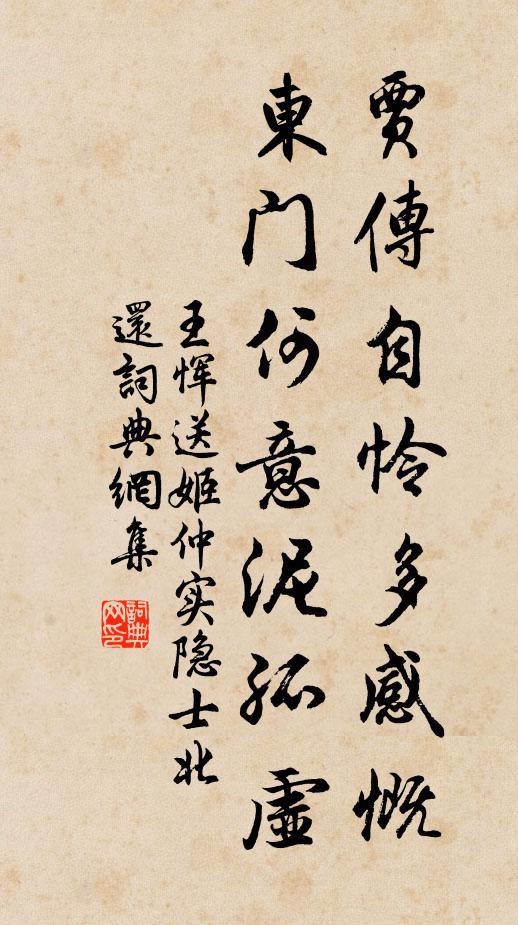 賈傅自怜多感慨
東門何意泥孤虛
王恽送姬仲实隐士北
還詞典網集
詞典
网印